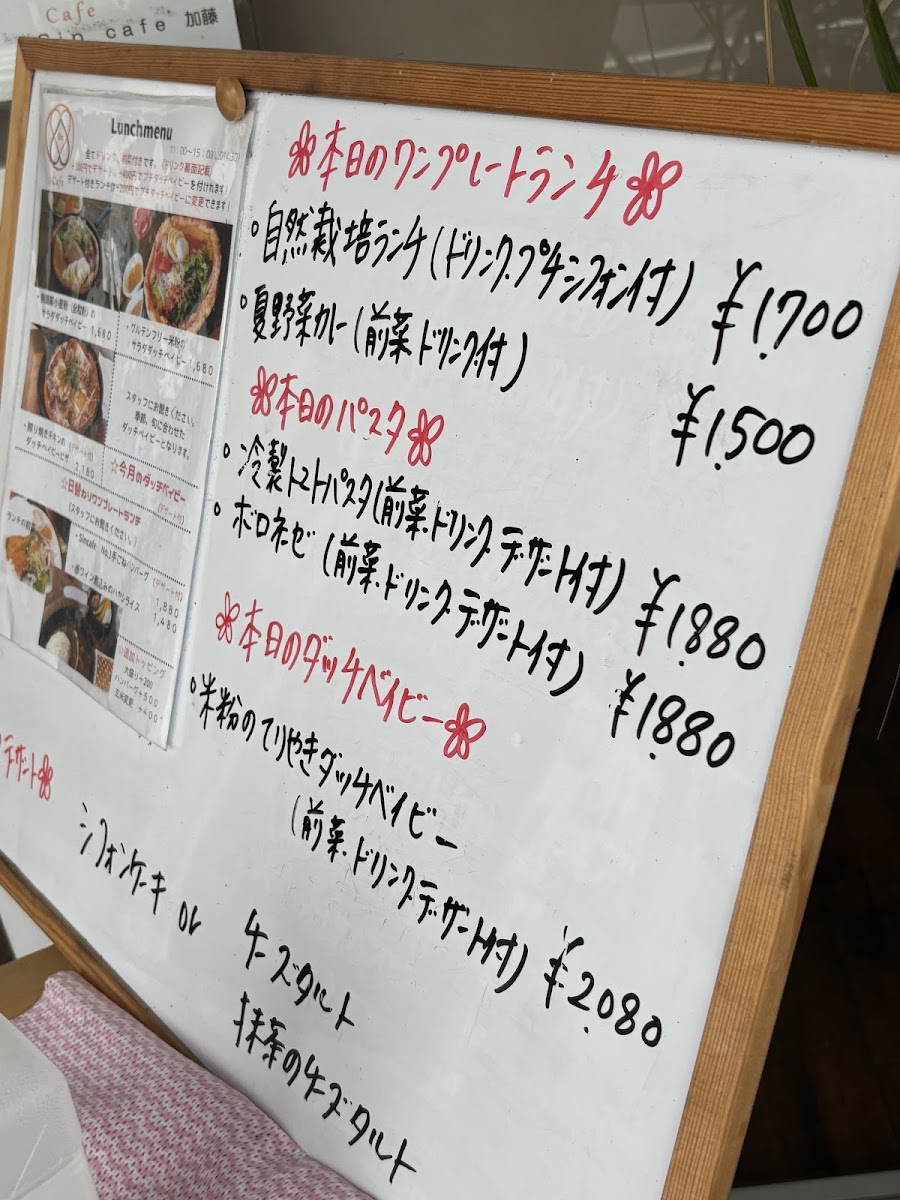 Cafe
Sin cafe 加藤
Lunchmenu
11:00~15:00(LO14:30)
全てドリンク、前菜付きです。(ドリンク裏面記載)
デザート付きランチは+200円でプチダッチベイビーに変更できます!
サラダダッチベイビー 1,680
・グルテンフリー米粉の
サラダダッチベイビー 1,680
スタッフにお聞きください。
季節、旬に合わせた
ダッチベイビーとなります。
・照り焼きチキンの (デザート付)
ダッチベイビーピザ 2,180
☆今月のダッチベイビー
(デザート付)
☆日替わりワンプレートランチ
(スタッフにお聞きください。)
・Sincafe No.1手ごねハンバーグ (デザート付)
1,880
・赤ワイン煮込みのハヤシライス
1,480
☆追加トッピング
大盛り+200
ハンバーグ+500
玄米変更 +400
本日のワンプレートランチ
・自然栽培ランチ(ドリンク.プチシフォン付) ¥1.700
・夏野菜カレー(前菜 ドリンク付) ¥1.500
本日のパスタ
・冷製トマトパスタ(前菜.ドリンク.デザート付) ¥1.880
・ボロネーゼ (前菜.ドリンク.デザート付) ¥1.880
本日のダッチベイビー
・米粉のてりやきダッチベイビー
(前菜.ドリンク.デザート付) ¥2.080
デザート
シフォンケーキ or チーズタルト
抹茶のチーズタルト